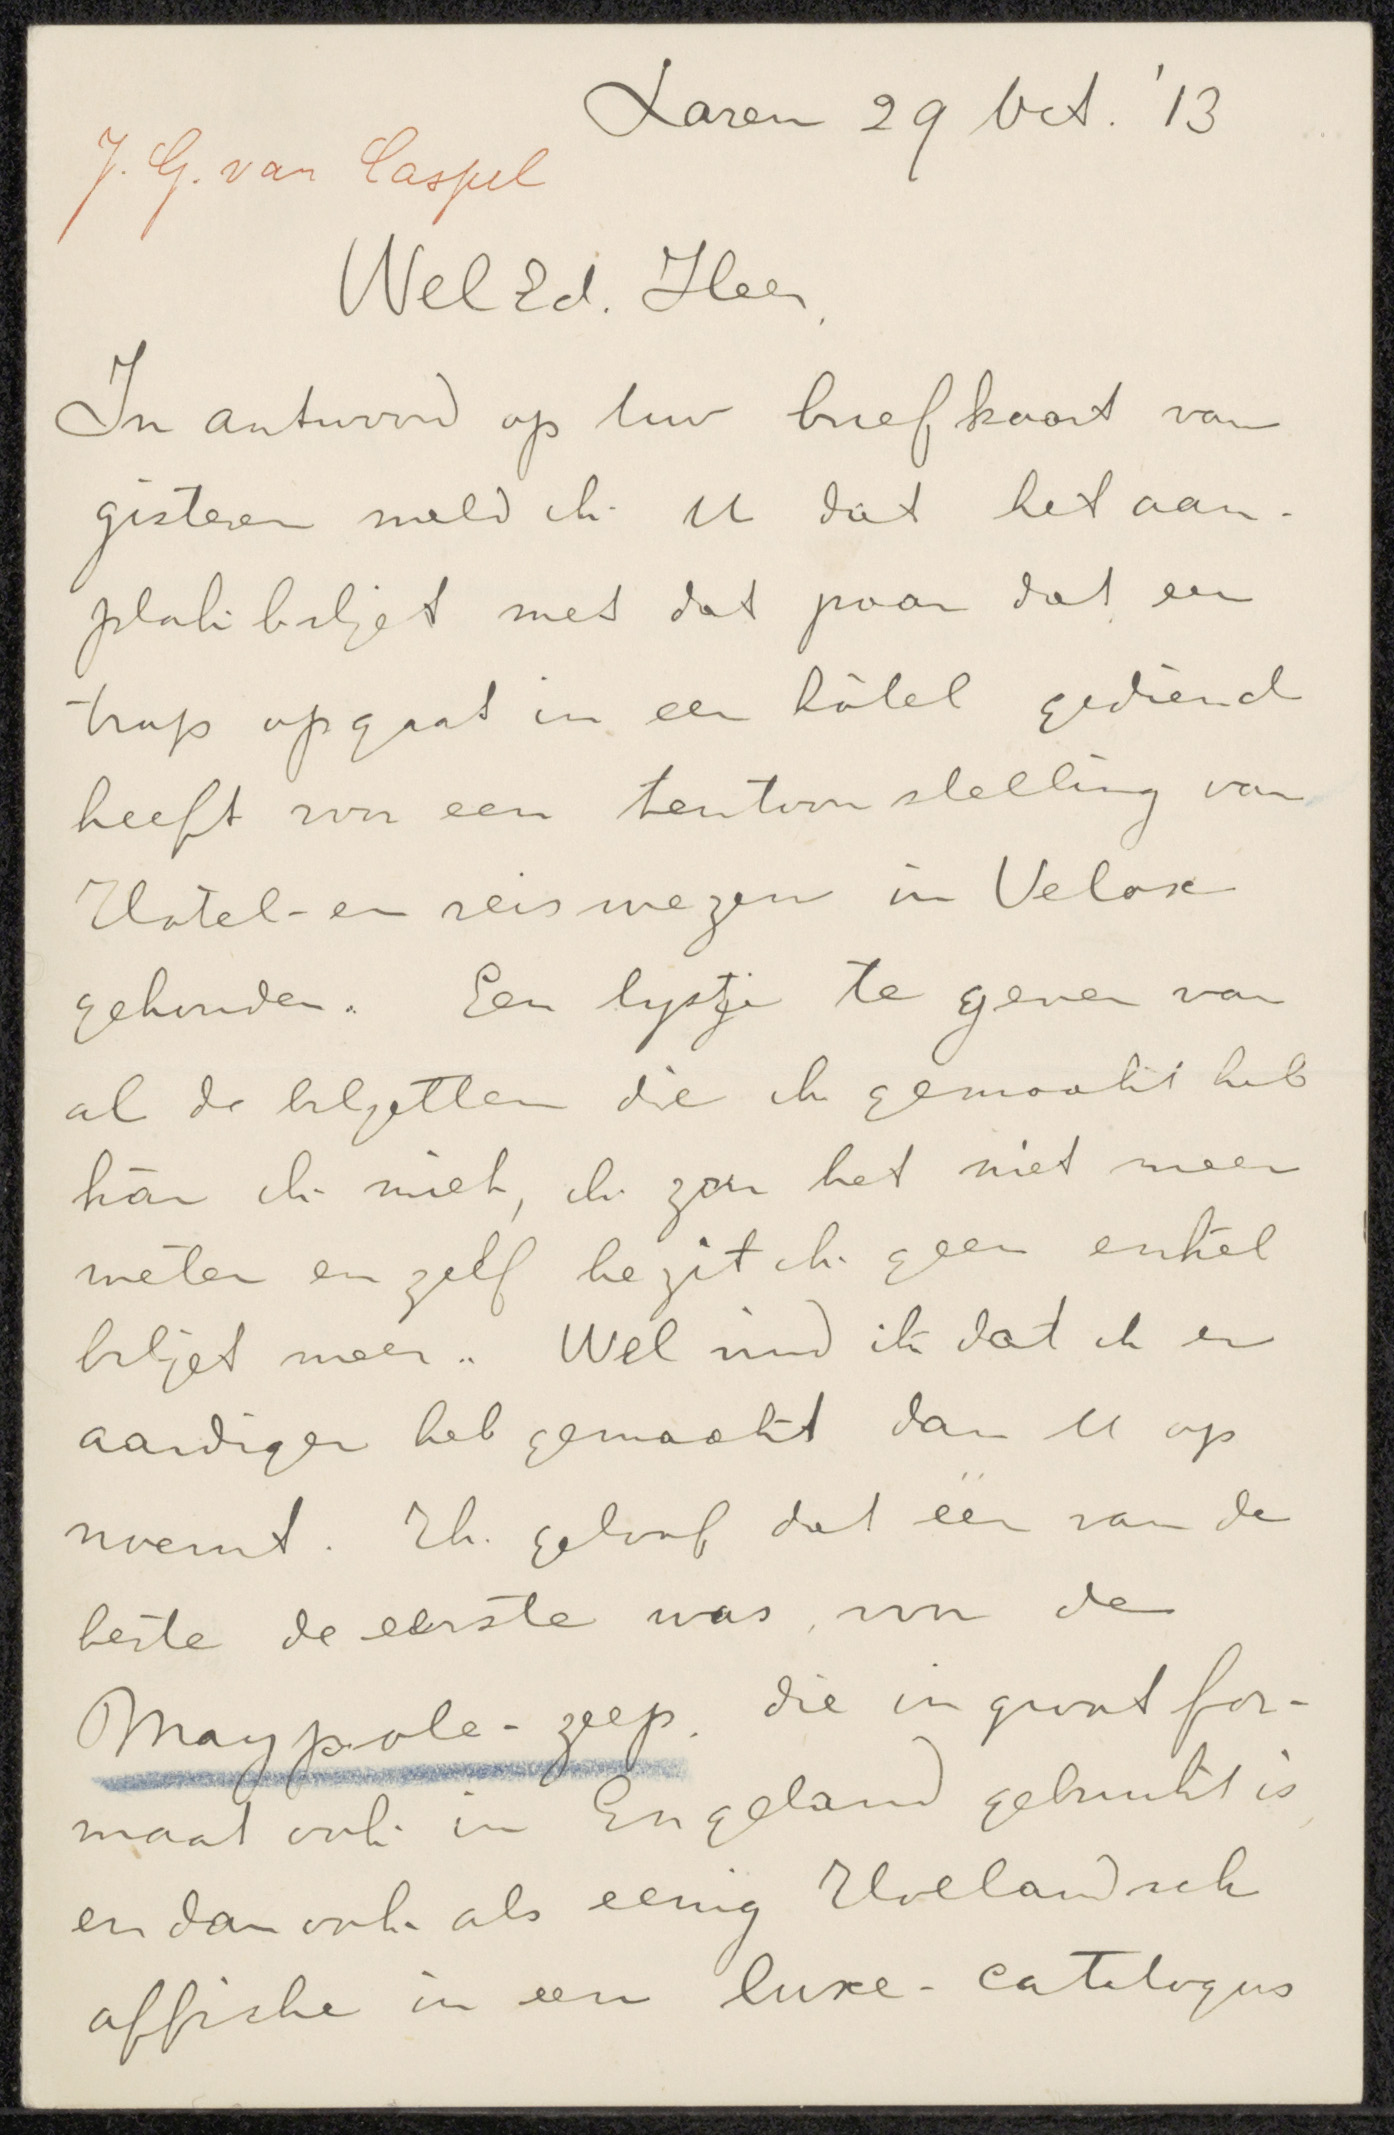 Laren 29 Oct. '13
J. G. van Caspel
WelEd. Heer,
In antwoord op Uw briefkaart van
gisteren meld ik U dat het aan-
plakbiljet met dat paar dat een
trap opgaat in een hôtel gediend
heeft voor een tentoonstelling van
Hotel- en reiswezen in Velox
gehouden. Een lystje te geven van
al de biljetten die ik gemaakt heb
kan ik niet, ik zou het niet meer
weten en zelf bezit ik geen enkel
biljet meer. Wel vind ik dat ik er
aardiger heb gemaakt dan U op
noemt. Ik geloof dat één van de
beste de eerste was, voor de
Maypole-zeep. die in groot for-
maat ook in Engeland gebruikt is,
en dan ook als eenig Hollandsch
affiche in een luxe-catalogus